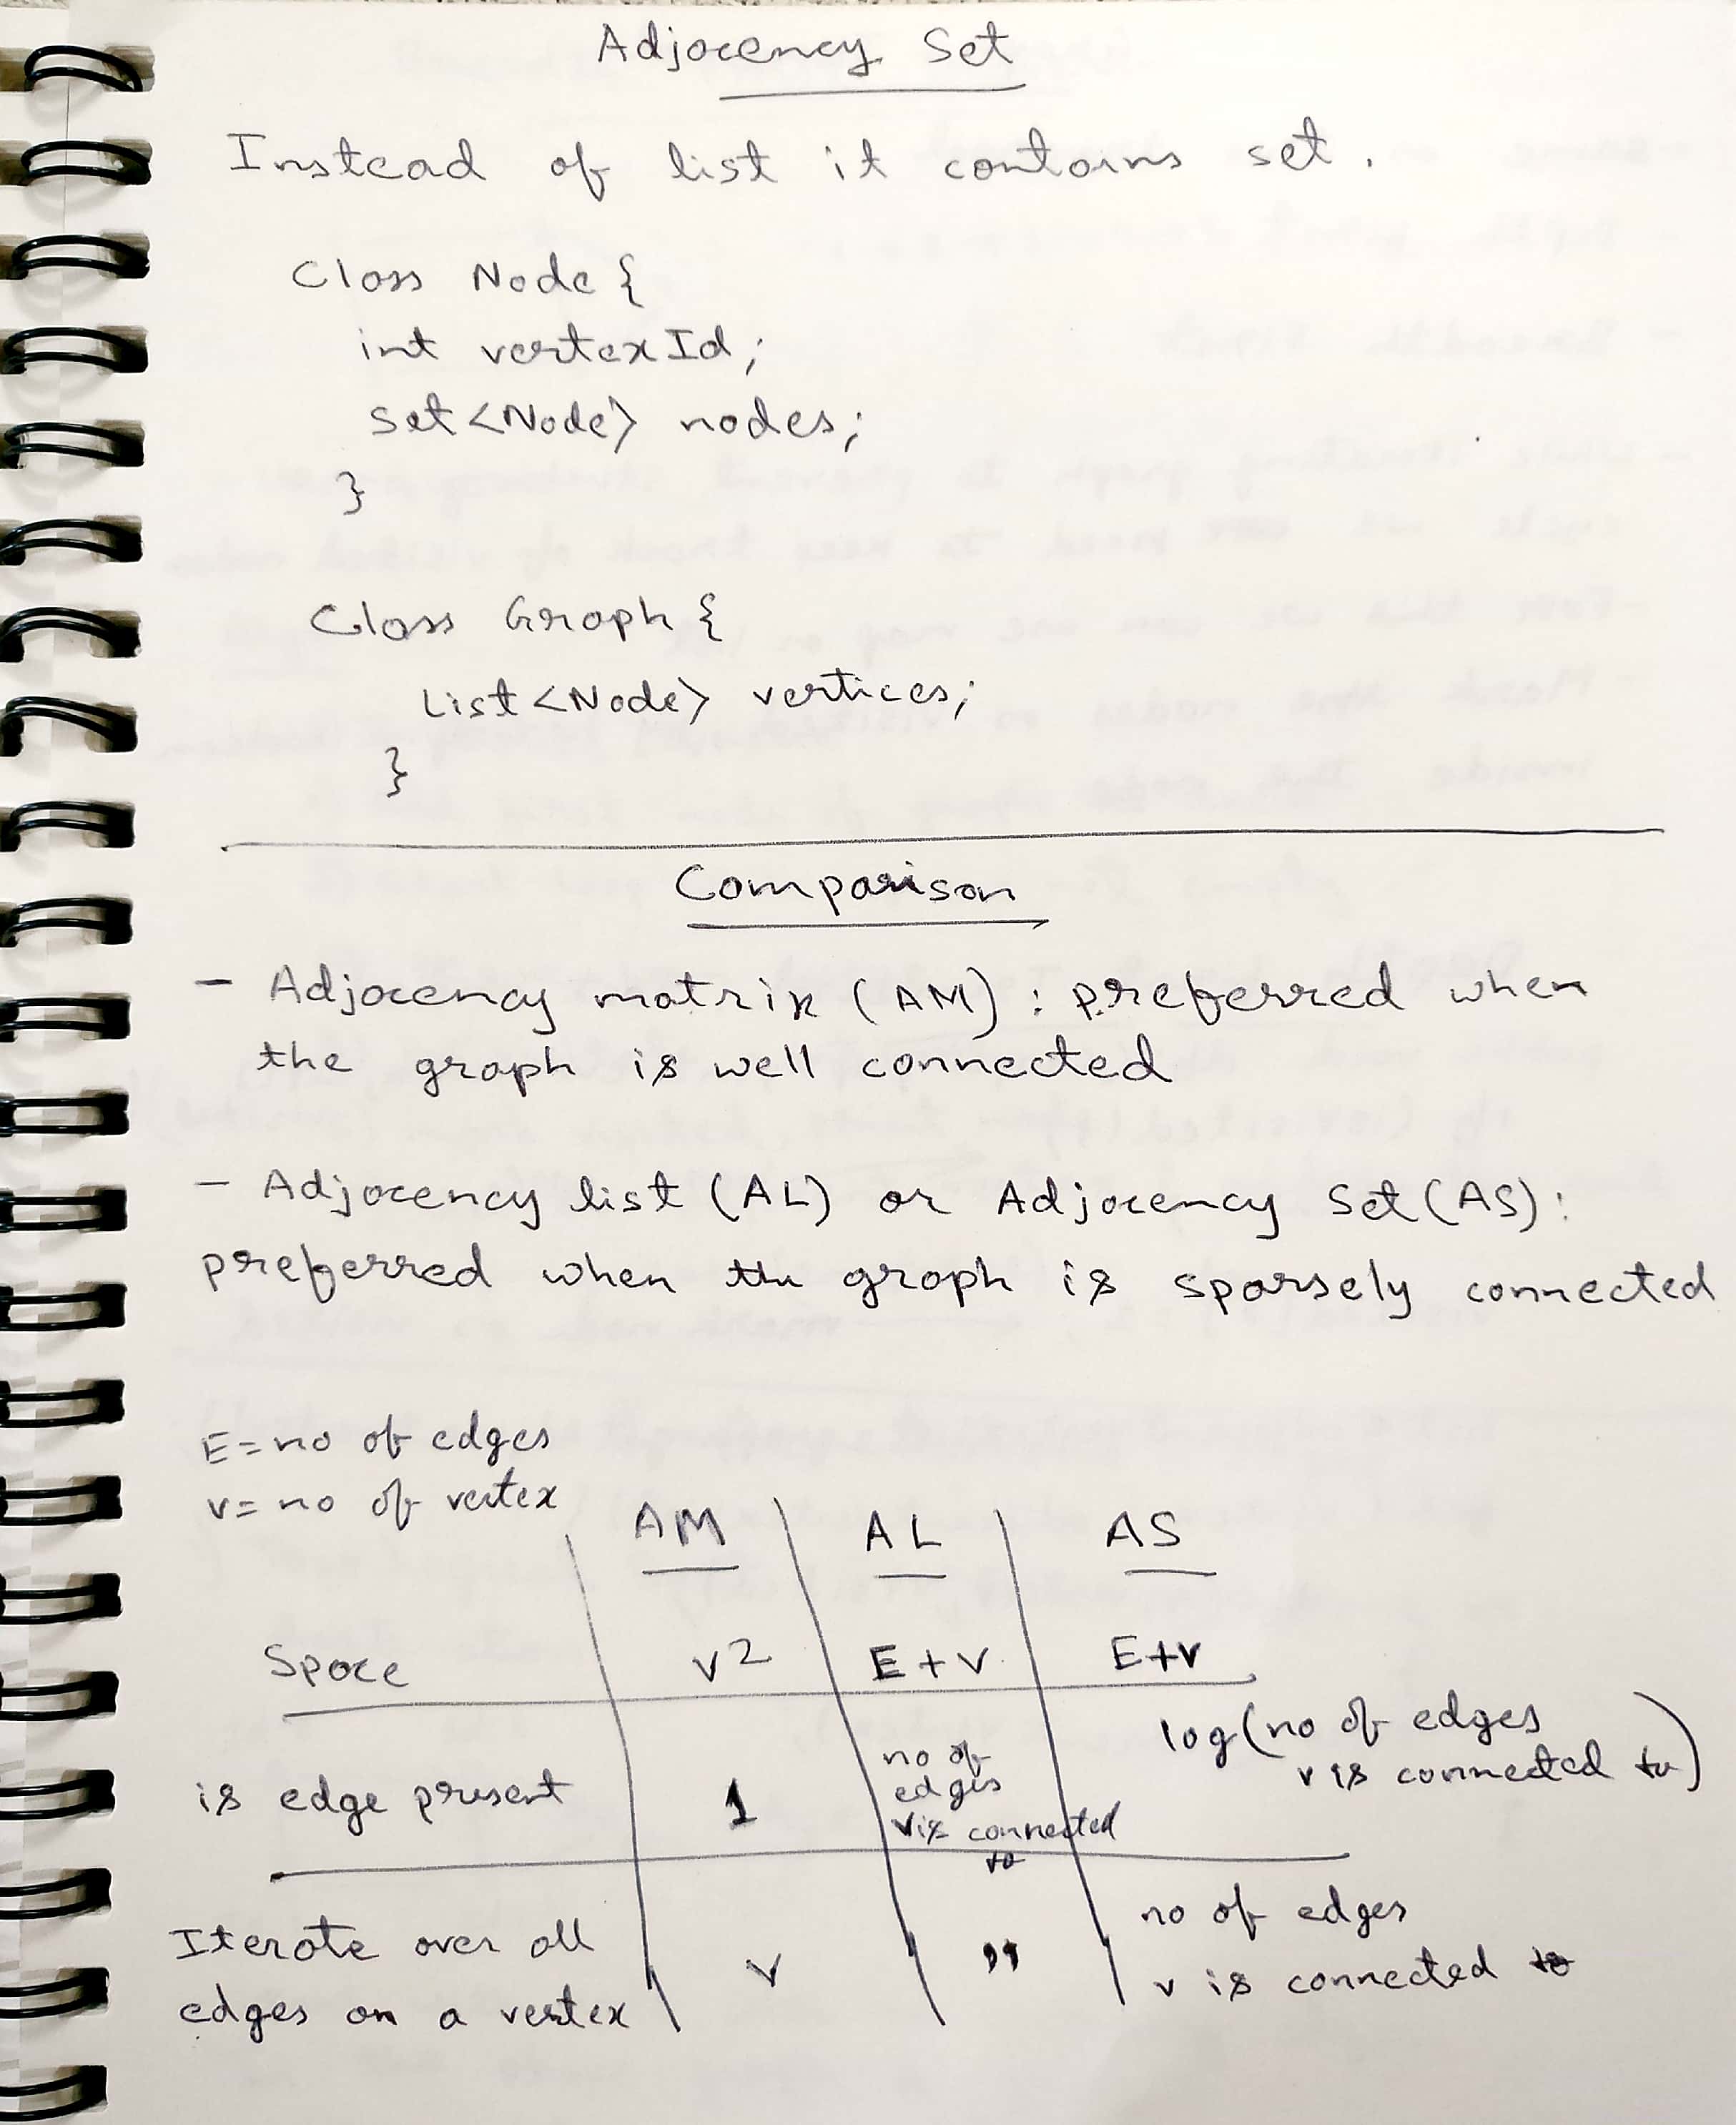 Adjacency Set
Instead of list it contains set.
Class Node {
int vertexId;
Set<Node> nodes;
}
Class Graph {
List<Node> vertices;
}
Comparison
- Adjacency matrix (AM) : preferred when
the graph is well connected
- Adjacency list (AL) or Adjacency Set (AS) :
preferred when the graph is sparsely connected
E = no of edges
v = no of vertex
AM AL AS
Space v2 E + v E+v
is edge present 1 no of edges v is connected to log(no of edges v is connected to)
Iterate over all edges on a vertex v " no of edges v is connected to